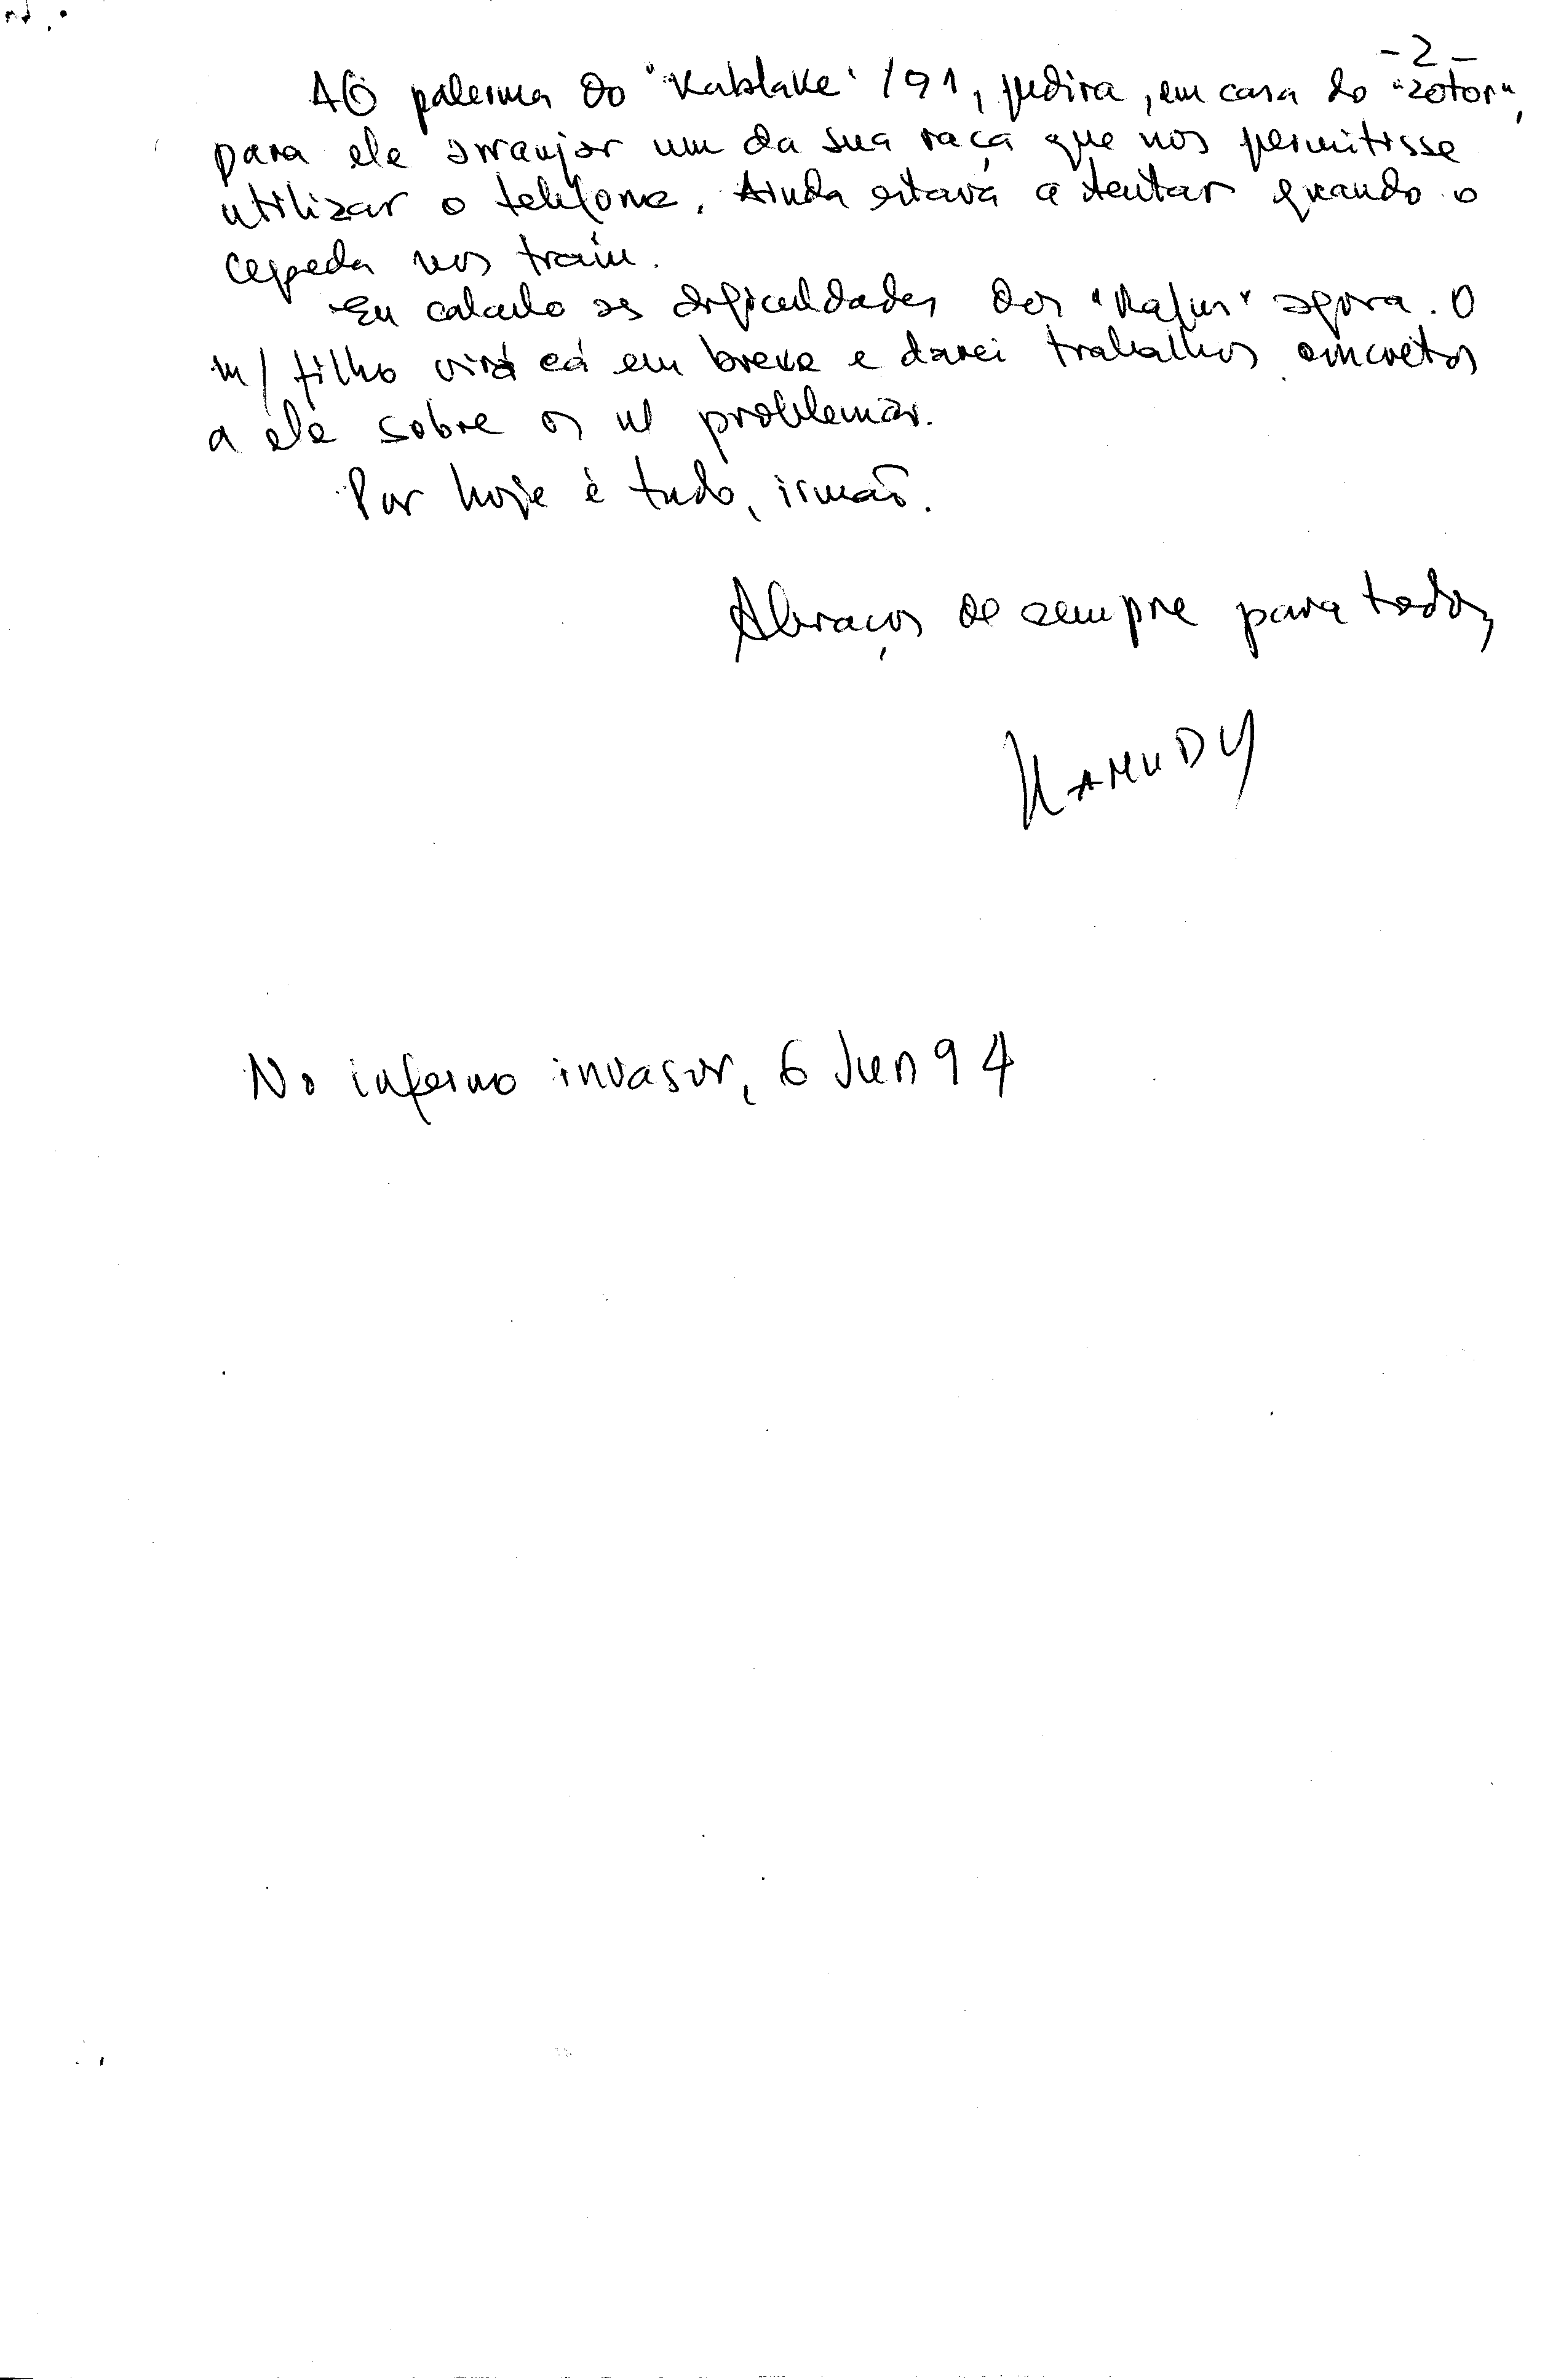 - 2 -
AO palerma do "Kablake" /91, pedira, em casa do "zotor",
para ele arranjar um da sua raça que nos permitisse
utilizar o telefone. Ainda estava a tentar quando o
cepeda nos traiu.
Eu calculo as dificuldades dos "Kafur" agora. O
m/ filho virá cá em breve e darei trabalhos concretos
a ele sobre os n/ problemas.
Por hoje é tudo, irmão.
Abraços de sempre para todos,
No inferno invasor, 6 Jun 94